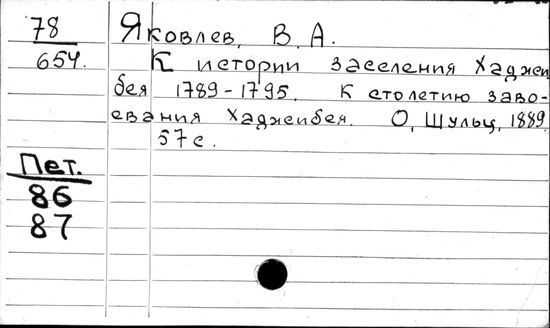 78
654.
Яковлев, В. А.
К истории заселения Хаджи
бея 1789-1795. К столетию заво-
евания Хаджибея. О, Шульц, 1889.
57 с.
Пет.
86
87